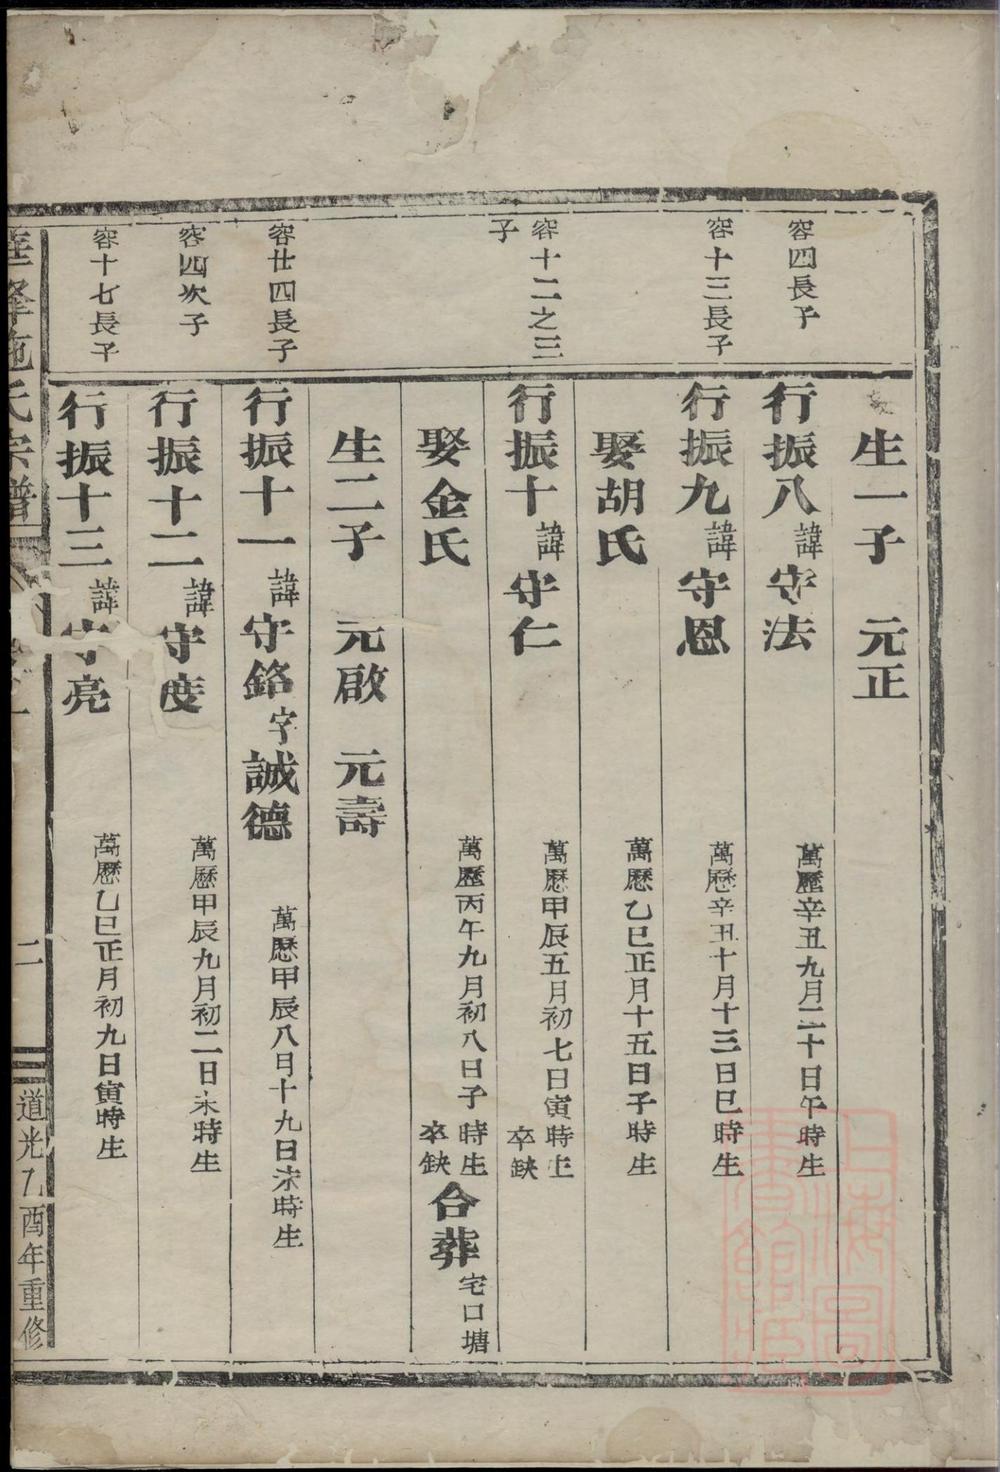 生一子　元正
容四長子
行振八諱守法　萬歷辛丑九月二十日午時生
容十三長子
行振九諱守恩　萬歷辛丑十月十三日巳時生
娶胡氏　萬歷乙巳正月十五日子時生
容十二之三
子
行振十諱守仁　萬歷甲辰五月初七日寅時生
卒缺
娶金氏　萬歷丙午九月初八日子時生
卒缺
合葬宅口塘
生二子　元啟　元壽
容廿四長子
行振十一諱守銘字誠德　萬歷甲辰八月十九日未時生
容四次子
行振十二諱守度　萬歷甲辰九月初二日未時生
容十七長子
行振十三諱守亮　萬歷乙巳正月初九日寅時生
施氏宗譜
二
道光乙酉年重修
上海圖
書館藏